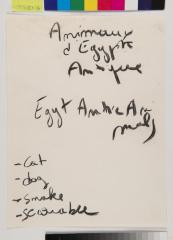 Animaux
d Egypte
Antique
Egypt Antic Ani
mals
- Cat
- dog
- Snake
- Scarabee